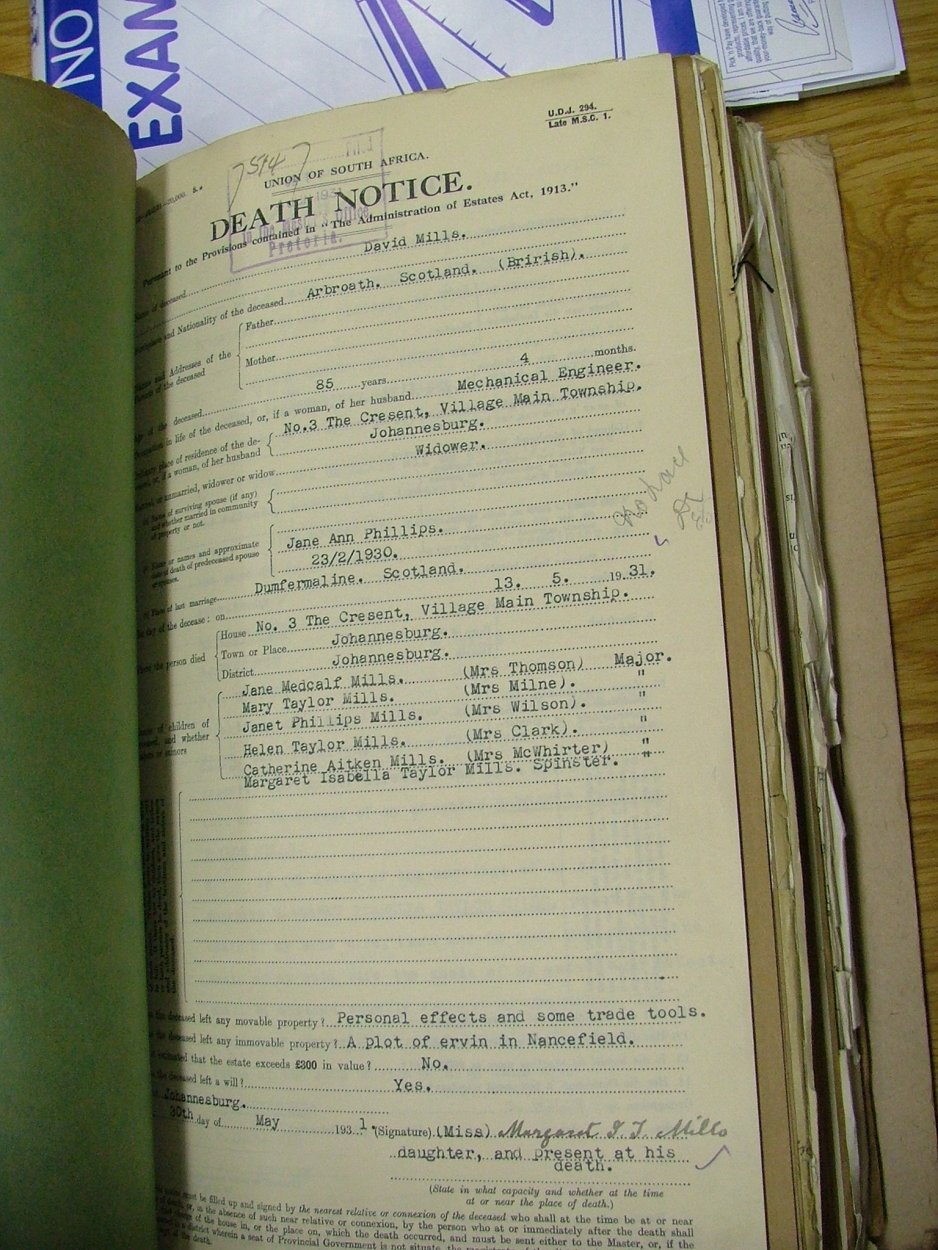 NO
EXAM
Pick 'n Pay have developed
U.D.J. 294.
Late M.S.C. 1.
7514
UNION OF SOUTH AFRICA.
DEATH NOTICE.
Pursuant to the Provisions contained in "The Administration of Estates Act, 1913."
Pretoria.
Name of deceased David Mills.
and Nationality of the deceased Arbroath. Scotland. (Brirish).
Names and Addresses of the
of the deceased
Father
Mother
Age of the deceased 85 years 4 months.
Occupation in life of the deceased, or, if a woman, of her husband Mechanical Engineer.
place of residence of the de-
or, if a woman, of her husband
No.3 The Cresent, Village Main Township.
Johannesburg.
unmarried, widower or widow Widower.
Name of surviving spouse (if any)
and whether married in community
of property or not.
or names and approximate
date of death of predeceased spouse
or spouses.
Jane Ann Phillips.
23/2/1930.
Place of last marriage Dumfermaline. Scotland.
day of the decease: on 13. 5. 1931.
Where the person died
House No. 3 The Cresent, Village Main Township.
Town or Place Johannesburg.
District Johannesburg.
of children of
and whether
or minors
Jane Medcalf Mills. (Mrs Thomson) Major.
Mary Taylor Mills. (Mrs Milne). "
Janet Phillips Mills. (Mrs Wilson). "
Helen Taylor Mills. (Mrs Clark). "
Catherine Aitken Mills. (Mrs McWhirter) "
Margaret Isabella Taylor Mills. Spinster. "
deceased left any movable property? Personal effects and some trade tools.
deceased left any immovable property? A plot of ervin in Nancefield.
estimated that the estate exceeds £300 in value? No.
deceased left a will? Yes.
Johannesburg.
30th day of May 1931. (Signature) (Miss) Margaret I. T. Mills
daughter, and present at his
death.
(State in what capacity and whether at the time
at or near the place of death.)
must be filled up and signed by the nearest relative or connexion of the deceased who shall at the time be at or near
or, in the absence of such near relative or connexion, by the person who at or immediately after the death shall
of the house in, or the place on, which the death occurred, and must be sent either to the Master, or, if the
wherein a seat of Provincial Government is not situate,